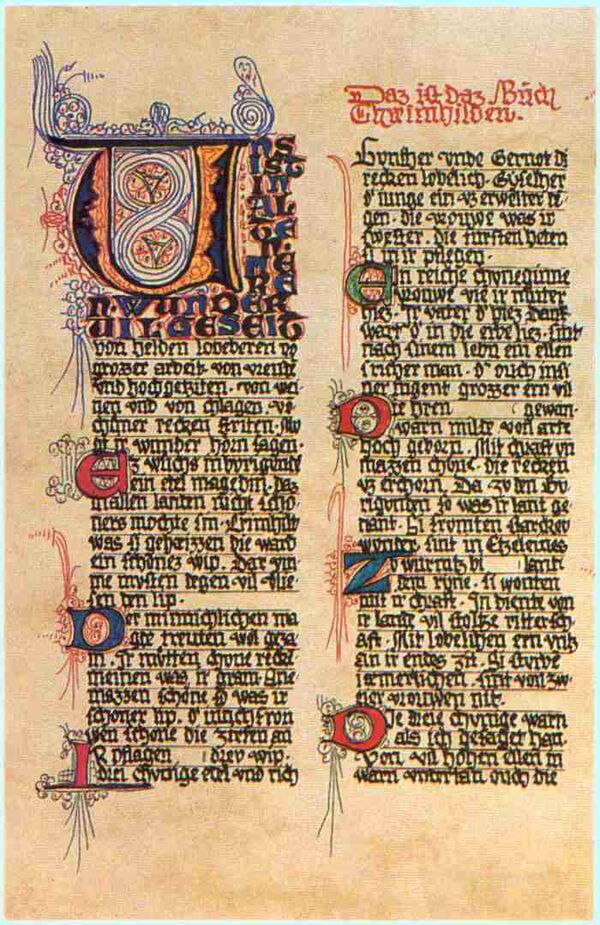 UNS
IST
IN
AL
TE
N. WUNDER
UIL GESEIT
von helden lobeberen vō
grozzer arbeit. von vreude
vnd hochgeziten. von wei
nen vnd von chlagen. vō
chuner recken striten. Mv
gt ir wunder horn sagen.
Ez wuchs inbyrigunde
ein edel magedin. daz
inallen landen nicht scho
ners mochte sin. Crimhilt
was si geheizzen die ward
ein schönez wip. Dar vm
me mvsten degen vil vlie
sen den lip.
Der minnichlichen ma
gde treuten wol geza
m. Ir mvtten chone recke
niemen was ir gram. Ane
mazzen schone so was ir
schoner lip. d' iunchfrow
wen schone die zierten an
Ir pflagen drey wip.
drei chvnige edel vnd rich
Daz ist daz Bůch
Chreimhilden.
Gvnther vnde Gernot di
recken lobelich. Gyselher
d' iunge ein vz erwelter de
gen. die vrouwe was ir
swester. die fursten heten
si in ir pflegen.
Ein reiche chvneginne
vrouwe vte ir muter
hiez. Ir vater d' hiez Dank
wart d' in die erbe liez. sint
nach sinem lebn ein ellen
s richer man. d' ouch in si
ner iugent grozzer ern vil
Die hren gewan.
warn milde von arte
hoch geborn. Mit chraft vn
mazzen chone. die recken
vz erchorn. Da zv den Bv
rigonden so was ir lant ge
nant. Si frvmten starcker
wonder. sint in Etzelenes
Zv wurmtz bi lant
dem ryne. si wonten
mit ir chraft. In diente von
ir lande vil stoltze rittersch
aft. Mit lobelichen ern vntz
an ir endes zit. Si sturbe
iemerlichen. sint von zw
eier vrouwen nit.
Die dreie chvnige warn
als ich gesaget han.
Von vil hohen ellen in
warn vntertan ouch die